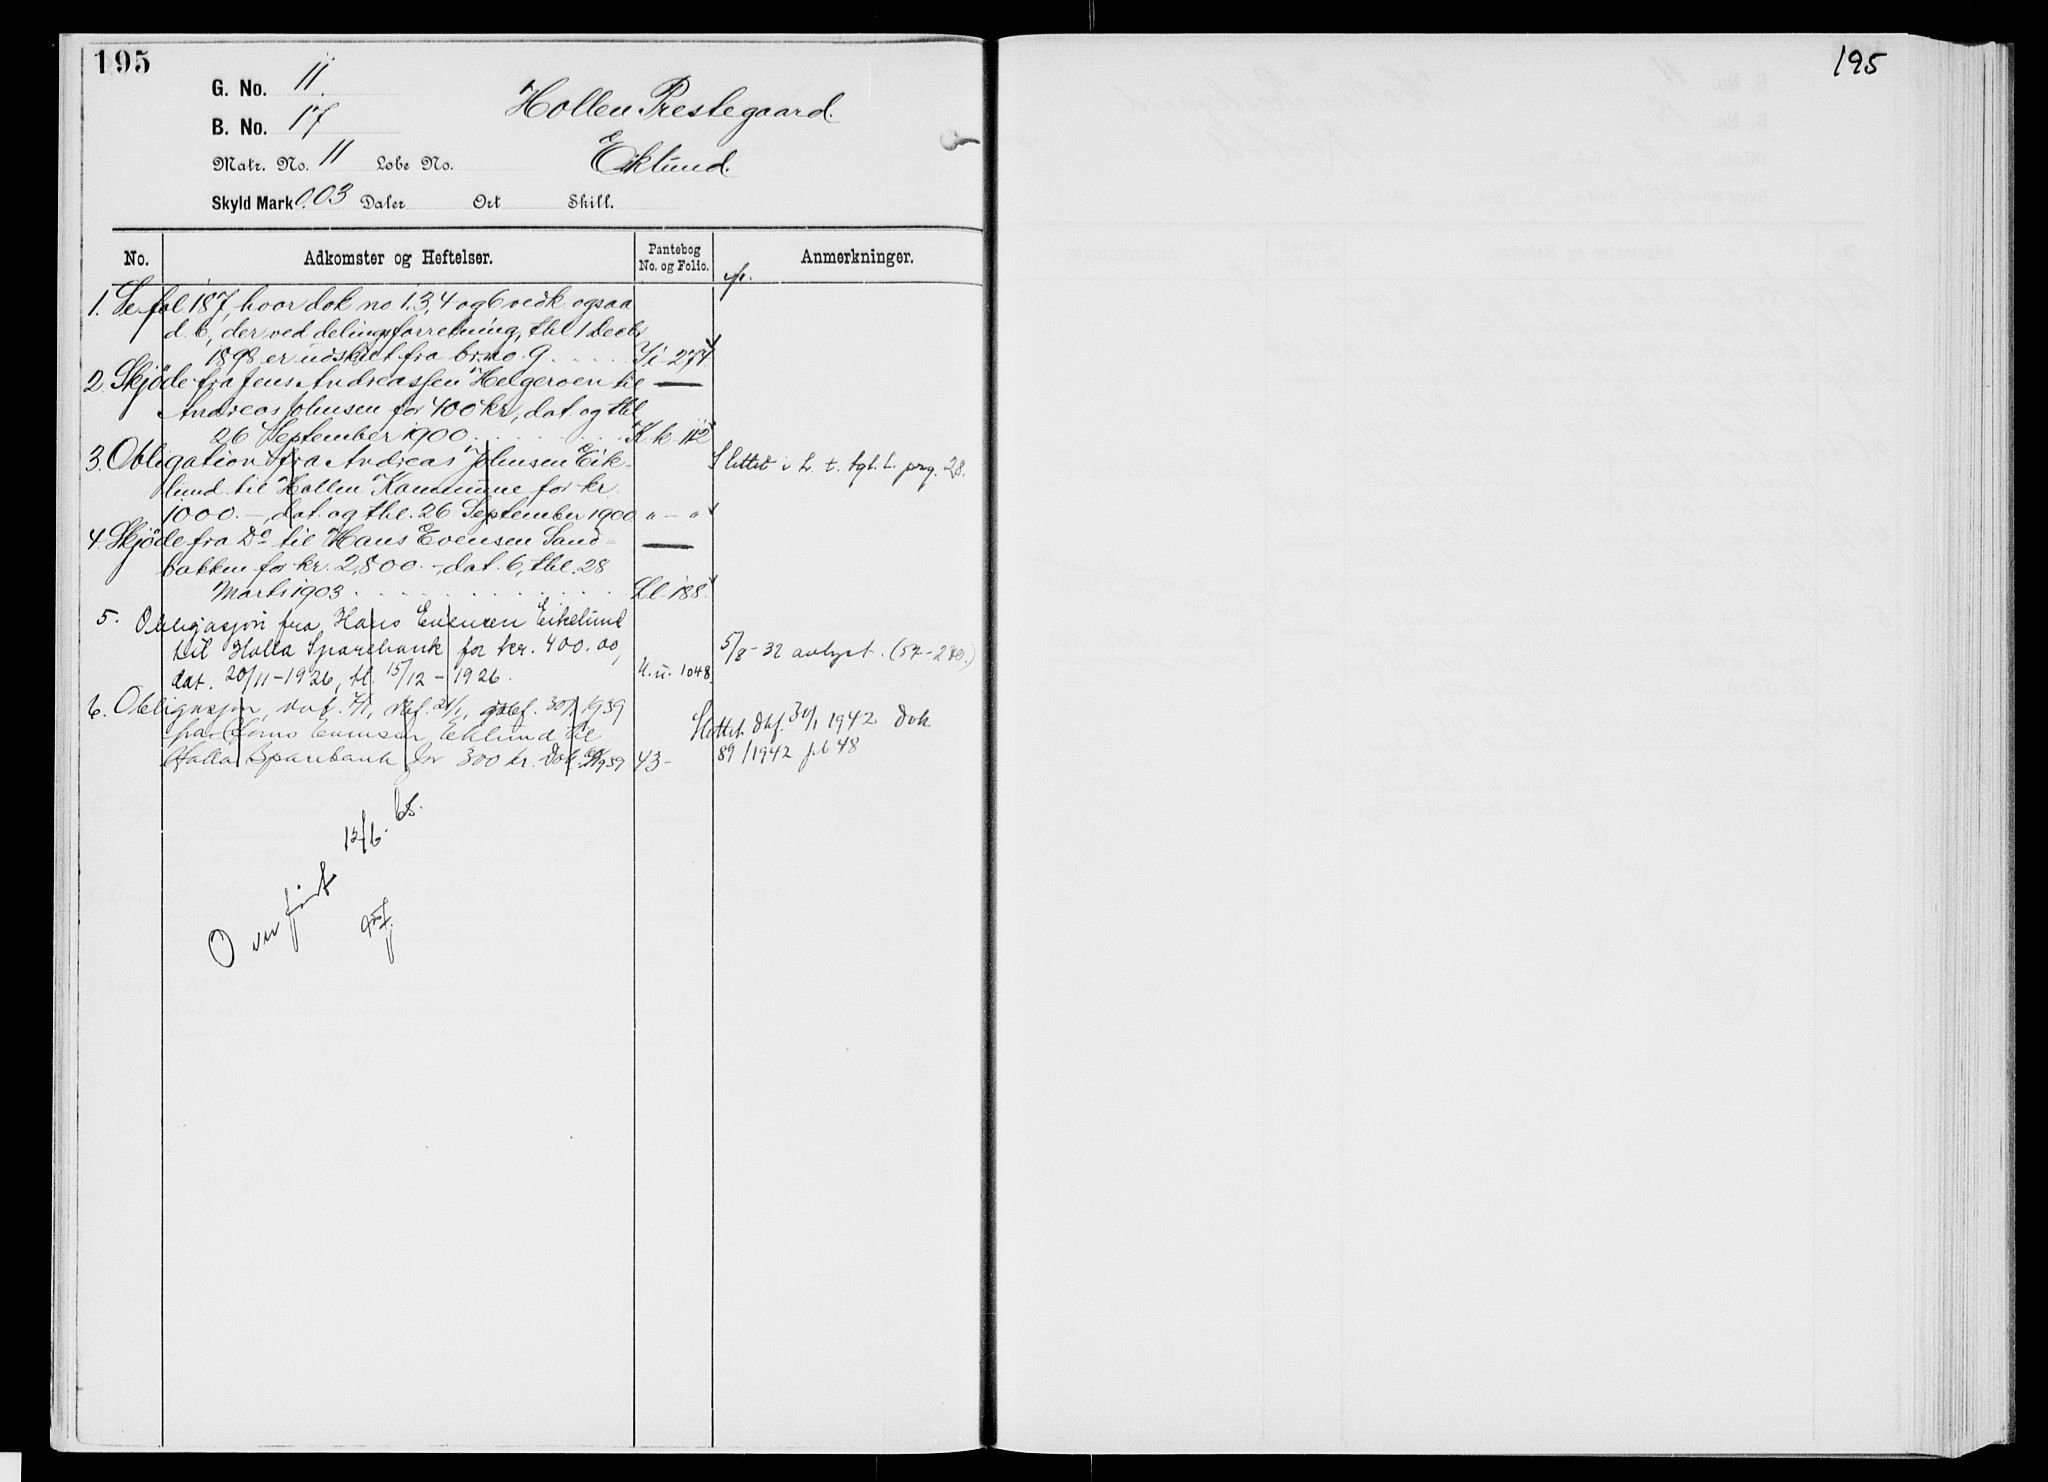 195
195
G. No. 11.
Hollen Prestegaard.
B. No. 17
Eiklund.
Matr. No. 11 Løbe No.
Skyld Mark 0.03 Daler Ort Skill.
No. Adkomster og Heftelser. Pantebog No. og Folio. Anmerkninger.
1. Se fol. 187, hvor dok no 1.3,4 og 6 vedk. ogsaa
d. b, der ved delingsforretning, thl 1 Decb
1898 er udskilt fra br.no 9 . . . . . I i 274
2. Skjöde fra Jens Andreassen Helgeroen til
Andreas Johnsen for 400 kr, dat. og thl
26 September 1900 . . . . . K. k. 112
3. Obligation fra Andreas Johnsen Eik- Slettet i h. t. tgl. l. prg. 28.
lund til Hollen Kommune for kr.
1000. -, dat. og thl. 26 September 1900 " - "
4. Skjöde fra Do til Hans Evensen Sand-
bakken for kr. 2,800. - dat. 6, thl. 28
Marts 1903 . . . . . Ll. 188.
5. Obligasjon fra Hans Evensen Eikelund
til Holla Sparebank for kr. 400.00, 5/8-32 avlyst. (57-280.)
dat. 20/11-1926, tl. 15/12-1926. U. u. 1048
6. Obligasjon, dat. 7/1, 30/1 1939 Slettet dbf. 30/1 1942 Dok
fra Hans Evensen Eklund til
Holla Sparebank for 300 kr. Dok 1939 43- 89/1942 fol 48
Overført 12/6. 65.